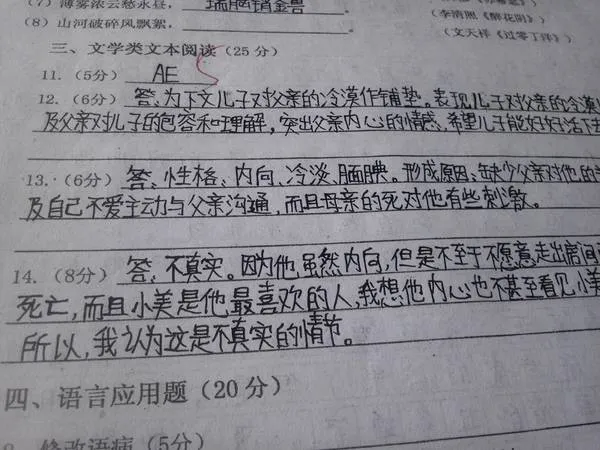 (7) 薄雾浓云愁永昼, 瑞脑销金兽
(李清照《醉花阴》)
(8) 山河破碎风飘絮,
(文天祥《过零丁洋》)
三、文学类文本阅读(25分)
11.(5分) AE 5
12.(6分) 答:为下文儿子对父亲的冷漠作铺垫。表现儿子对父亲的冷漠
及父亲对儿子的包容和理解,突出父亲内心的情感、希望儿子能好好活下去
13.(6分) 答:性格、内向、冷淡、腼腆。形成原因:缺少父亲对他的
及自己不爱主动与父亲沟通,而且母亲的死对他有些刺激。
14.(8分) 答:不真实。因为他虽然内向,但是不至于不愿意走出房间
死亡,而且小美是他最喜欢的人,我想他内心也不甚至看见小美
所以,我认为这是不真实的情节。
四、语言应用题(20分)
修改语病(5分)